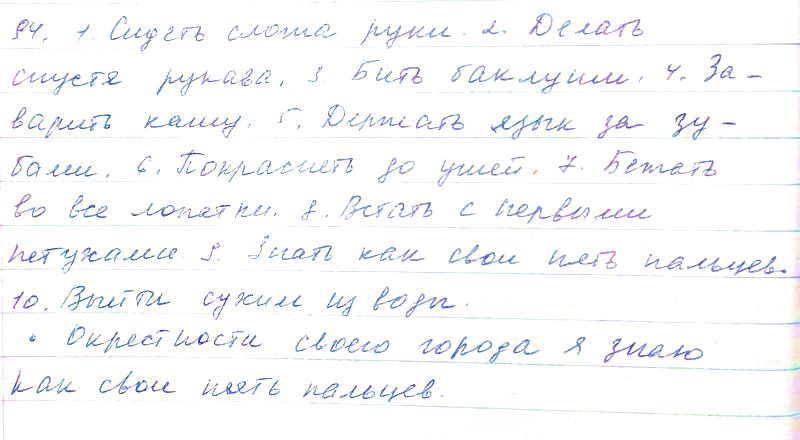 94. 1. Сидеть сложа руки. 2. Делать
спустя рукава. 3. Бить баклуши. 4. За-
варить кашу. 5. Держать язык за зу-
бами. 6. Покраснеть до ушей. 7. Бежать
во все лопатки. 8. Встать с первыми
петухами. 9. Знать как свои пять пальцев.
10. Выйти сухим из воды.
• Окрестности своего города я знаю
как свои пять пальцев.